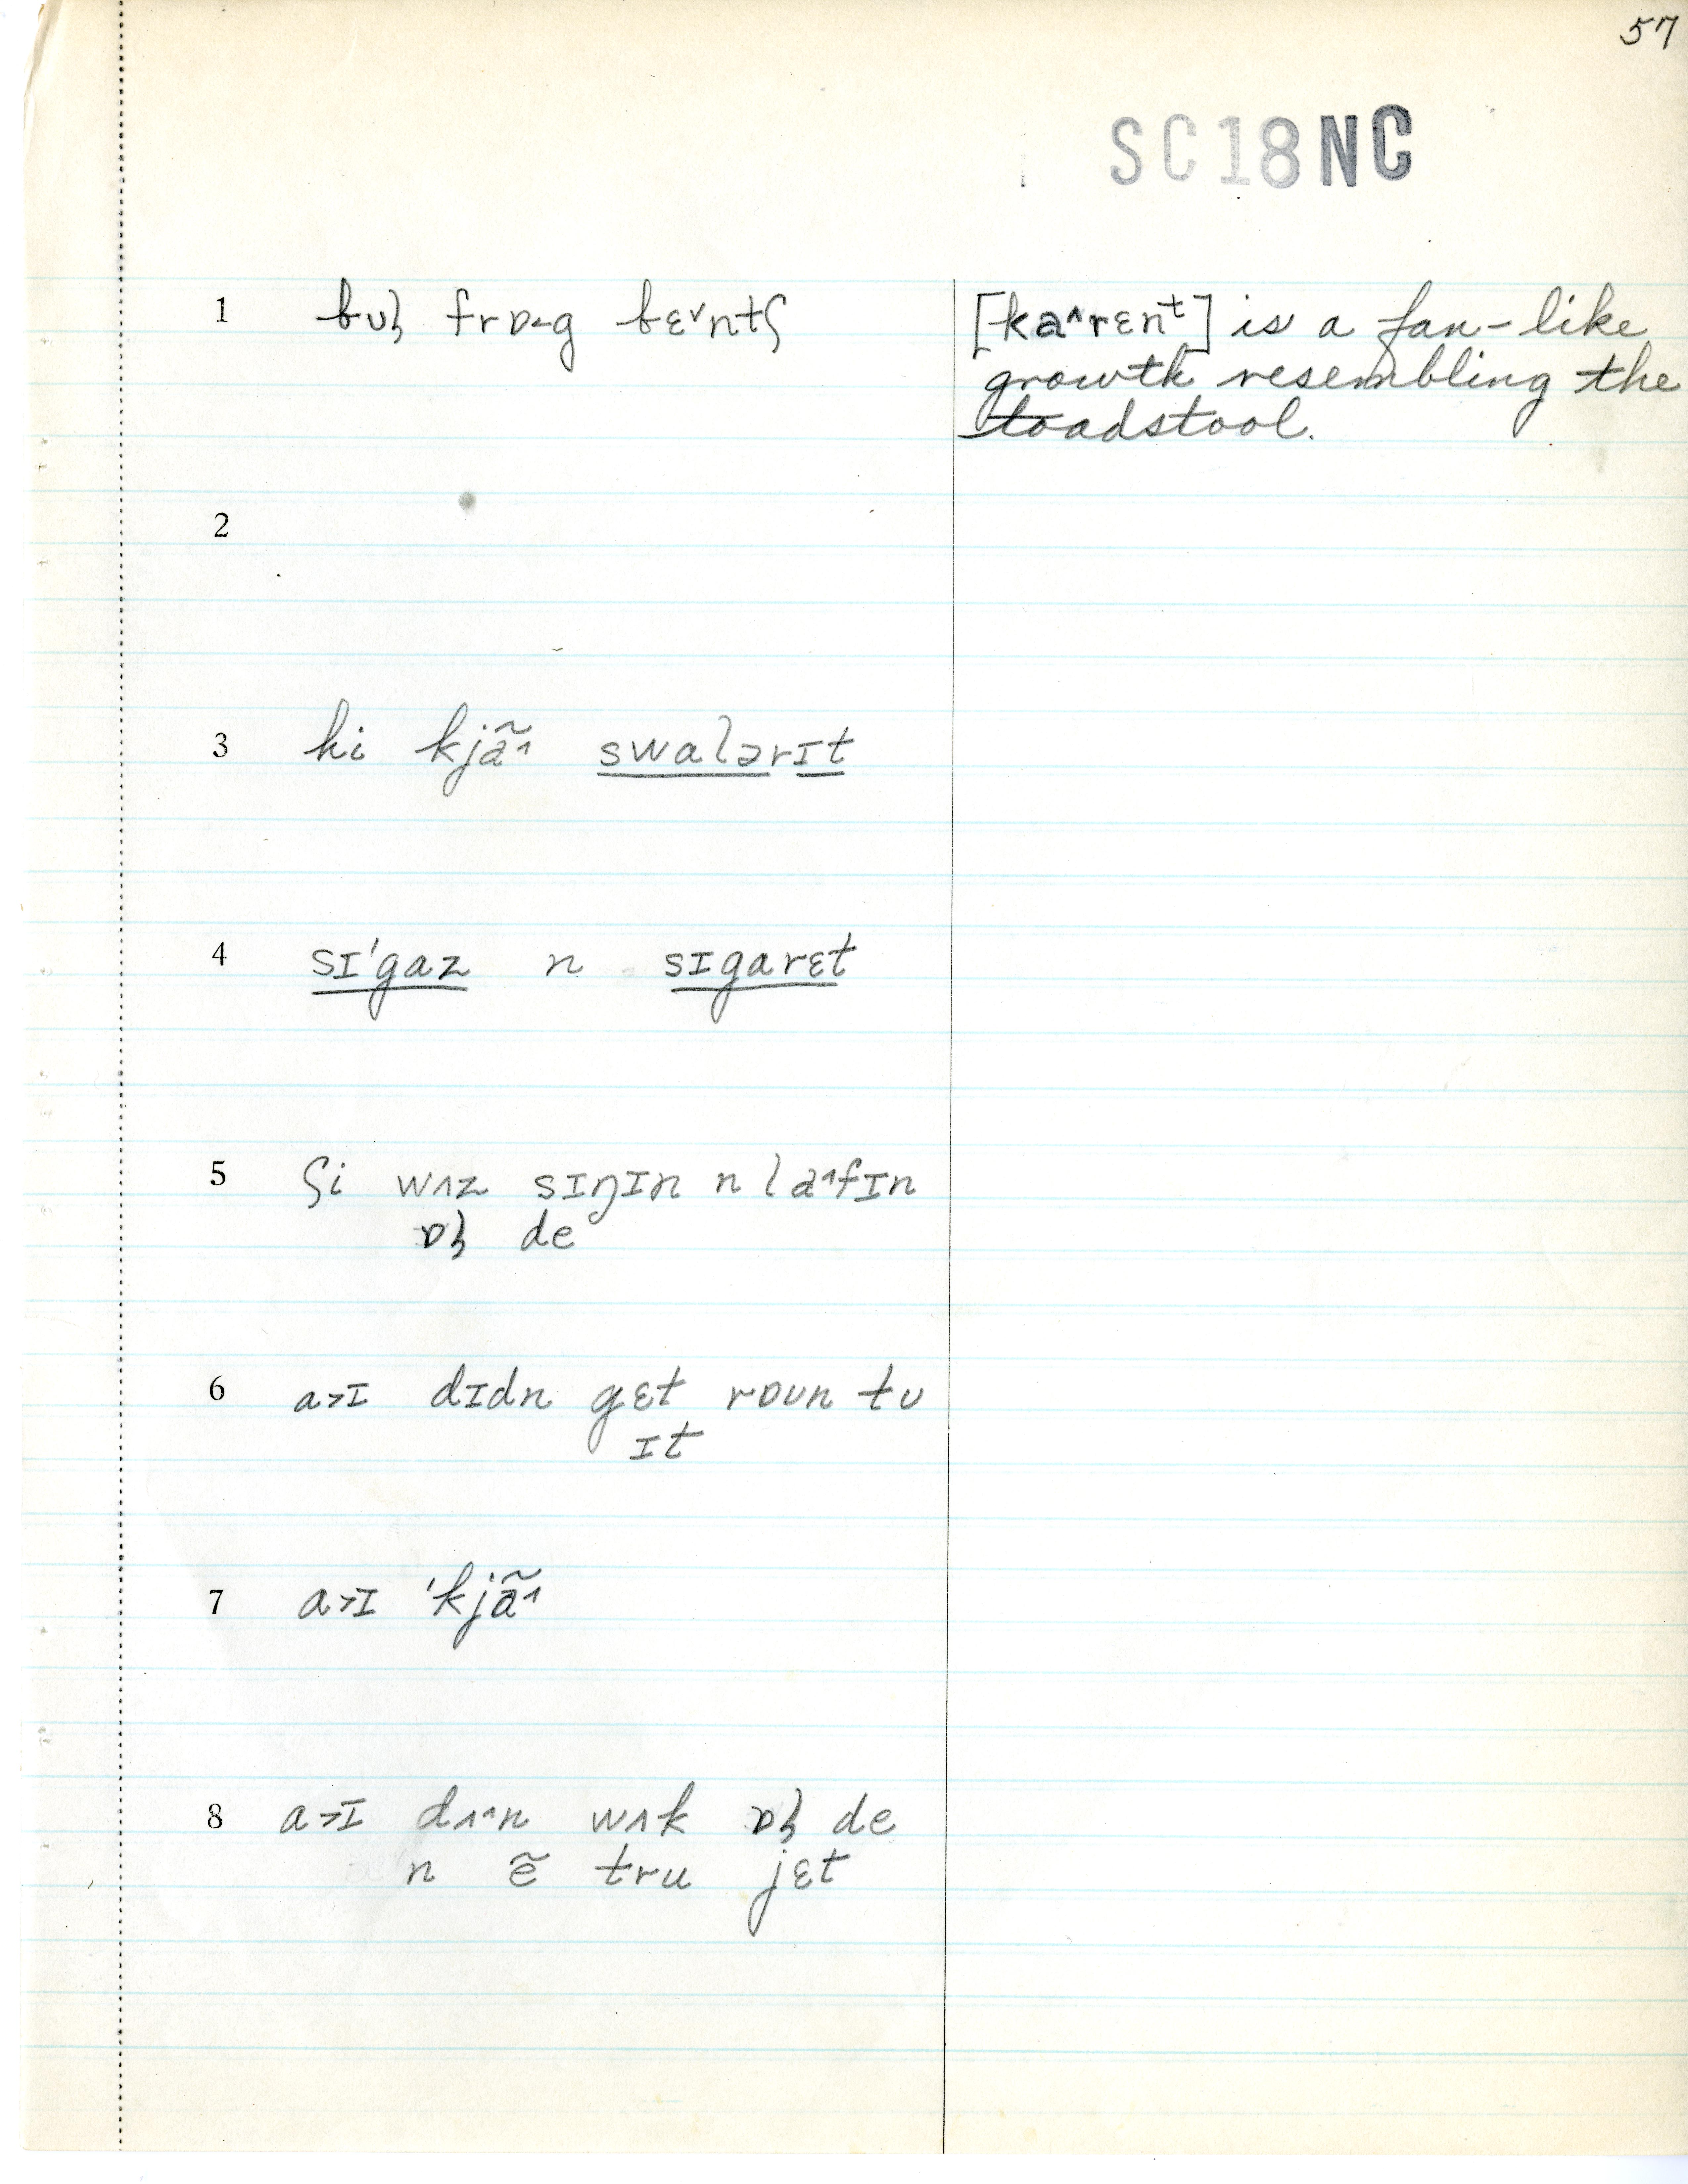 57
SC18NC
1 bʊl̥ frɒ˂g bɛ˅ntʃ
[ka˄rɛnᵗ] is a fan-like
growth resembling the
toadstool.
2
3 hi kjã˄ swalərɪt
4 sɪ'gaz n sɪgarɛt
5 ʃi wʌz sɪŋɪn n la˄fɪn
ɒl̥ de
6 a˃ɪ dɪdn gɛt rɒʊn tʊ
ɪt
7 a˃ɪ 'kjã˄
8 a˃ɪ dʌ˄n wʌk ɒl̥ de
n ẽ tru jɛt